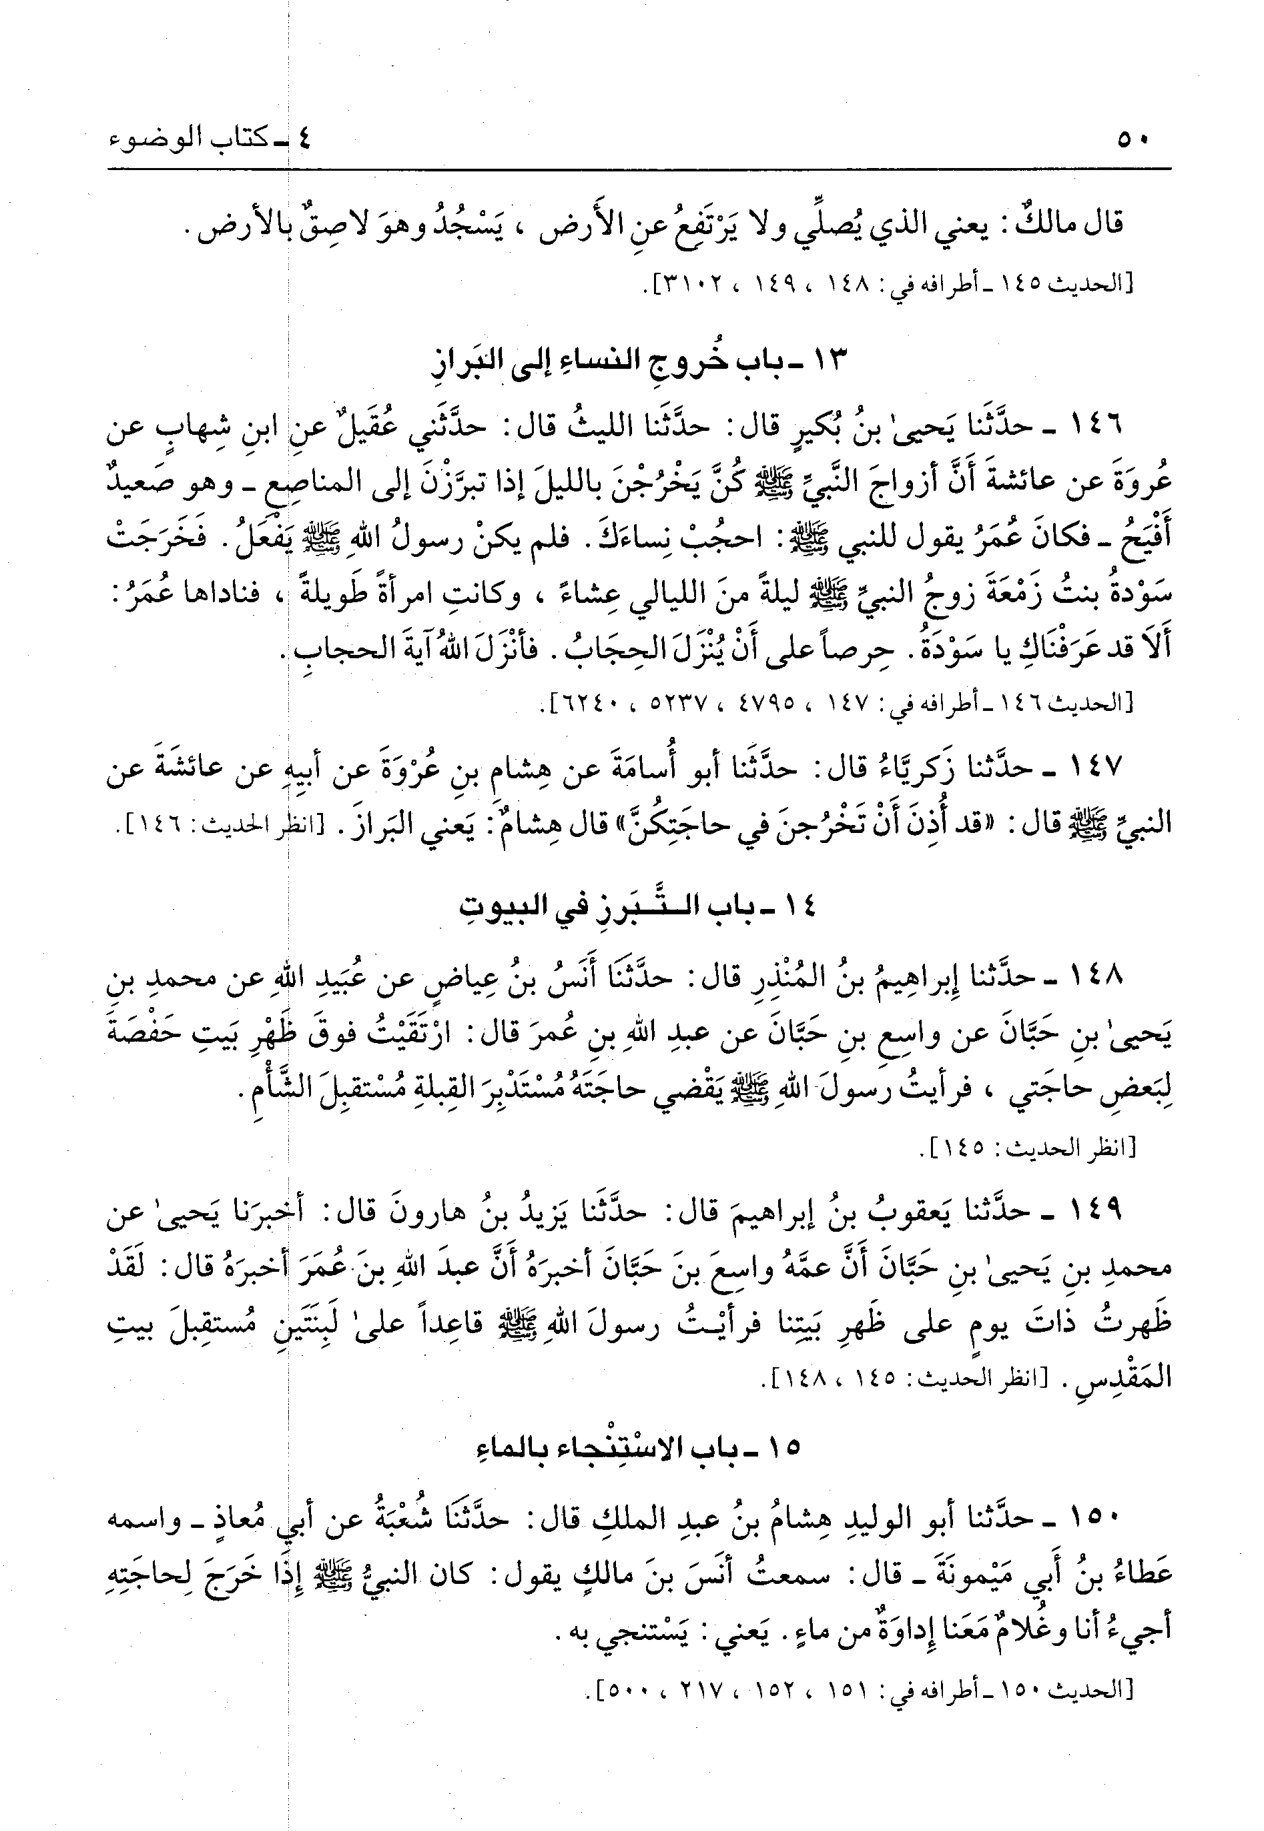 ٥٠
٤ ـ كتاب الوضوء
قال مالكٌ: يعني الذي يُصلِّي ولا يَرْتَفِعُ عنِ الأَرض ، يَسْجُدُ وهوَ لاصِقٌ بالأرض.
[الحديث ١٤٥ ـ أطرافه في: ١٤٨ ، ١٤٩ ، ٣١٠٢].
١٣ ـ باب خُروجِ النساءِ إلى البَرازِ
١٤٦ ـ حدَّثَنا يَحيىٰ بنُ بُكيرٍ قال: حدَّثَنا الليثُ قال: حدَّثَني عُقَيلٌ عنِ ابنِ شِهابٍ عن
عُروَةَ عن عائشةَ أَنَّ أزواجَ النَّبيِّ ﷺ كُنَّ يَخْرُجْنَ بالليلَ إذا تبرَّزْنَ إلى المناصِعِ ـ وهو صَعيدٌ
أَفْيَحُ ـ فكانَ عُمَرُ يقول للنبي ﷺ: احجُبْ نِساءَكَ. فلم يكنْ رسولُ اللهِ ﷺ يَفْعَلُ. فَخَرَجَتْ
سَوْدةُ بنتُ زَمْعَةَ زوجُ النبيِّ ﷺ ليلةً منَ الليالي عِشاءً ، وكانتِ امرأةً طَويلةً ، فناداها عُمَرُ:
أَلَا قد عَرَفْنَاكِ يا سَوْدَةُ. حِرصاً على أَنْ يُنْزَلَ الحِجَابُ. فأنْزَلَ اللهُ آيةَ الحجابِ.
[الحديث ١٤٦ ـ أطرافه في: ١٤٧ ، ٤٧٩٥ ، ٥٢٣٧ ، ٦٢٤٠].
١٤٧ ـ حدَّثنا زَكريَّاءُ قال: حدَّثَنا أبو أُسامَةَ عن هِشامِ بنِ عُرْوَةَ عن أبيهِ عن عائشَةَ عن
النبيِّ ﷺ قال: «قد أُذِنَ أَنْ تَخْرُجنَ في حاجَتِكُنَّ» قال هِشامٌ: يَعني البَرازَ. [انظر الحديث: ١٤٦].
١٤ ـ باب التَّبَرزِ في البيوتِ
١٤٨ ـ حدَّثنا إبراهِيمُ بنُ المُنْذِرِ قال: حدَّثَنَا أَنَسُ بنُ عِياضٍ عن عُبَيدِ اللهِ عن محمدِ بنِ
يَحيىٰ بنِ حَبَّانَ عن واسِعِ بنِ حَبَّانَ عن عبدِ اللهِ بنِ عُمرَ قال: ارْتَقَيْتُ فوقَ ظَهْرِ بَيتِ حَفْصَةَ
لِبَعضِ حاجَتي ، فرأيتُ رسولَ اللهِ ﷺ يَقْضي حاجَتَهُ مُسْتَدْبِرَ القِبلةِ مُسْتقبِلَ الشَّأْمِ.
[انظر الحديث: ١٤٥].
١٤٩ ـ حدَّثنا يَعقوبُ بنُ إبراهيمَ قال: حدَّثَنا يَزيدُ بنُ هارونَ قال: أخبرَنا يَحيىٰ عن
محمدِ بنِ يَحيىٰ بنِ حَبَّانَ أَنَّ عمَّهُ واسِعَ بنَ حَبَّانَ أخبرَهُ أَنَّ عبدَ اللهِ بنَ عُمَرَ أخبرَهُ قال: لَقَدْ
ظَهرتُ ذاتَ يومٍ على ظَهرِ بَيتِنا فرأيْتُ رسولَ اللهِ ﷺ قاعِداً علىٰ لَبِنَتَينِ مُستقبِلَ بيتِ
المَقْدِسِ. [انظر الحديث: ١٤٥ ، ١٤٨].
١٥ ـ باب الاسْتِنْجاء بالماءِ
١٥٠ ـ حدَّثنا أبو الوليدِ هِشامُ بنُ عبدِ الملكِ قال: حدَّثَنَا شُعْبَةُ عن أبي مُعاذٍ ـ واسمه
عَطاءُ بنُ أَبي مَيْمونَةَ ـ قال: سمعتُ أنَسَ بنَ مالكٍ يقول: كان النبيُّ ﷺ إِذَا خَرَجَ لِحاجَتِهِ
أجيءُ أنا وغُلامٌ مَعَنا إداوَةٌ من ماءٍ. يَعني: يَسْتنجي به.
[الحديث ١٥٠ ـ أطرافه في: ١٥١ ، ١٥٢ ، ٢١٧ ، ٥٠٠].